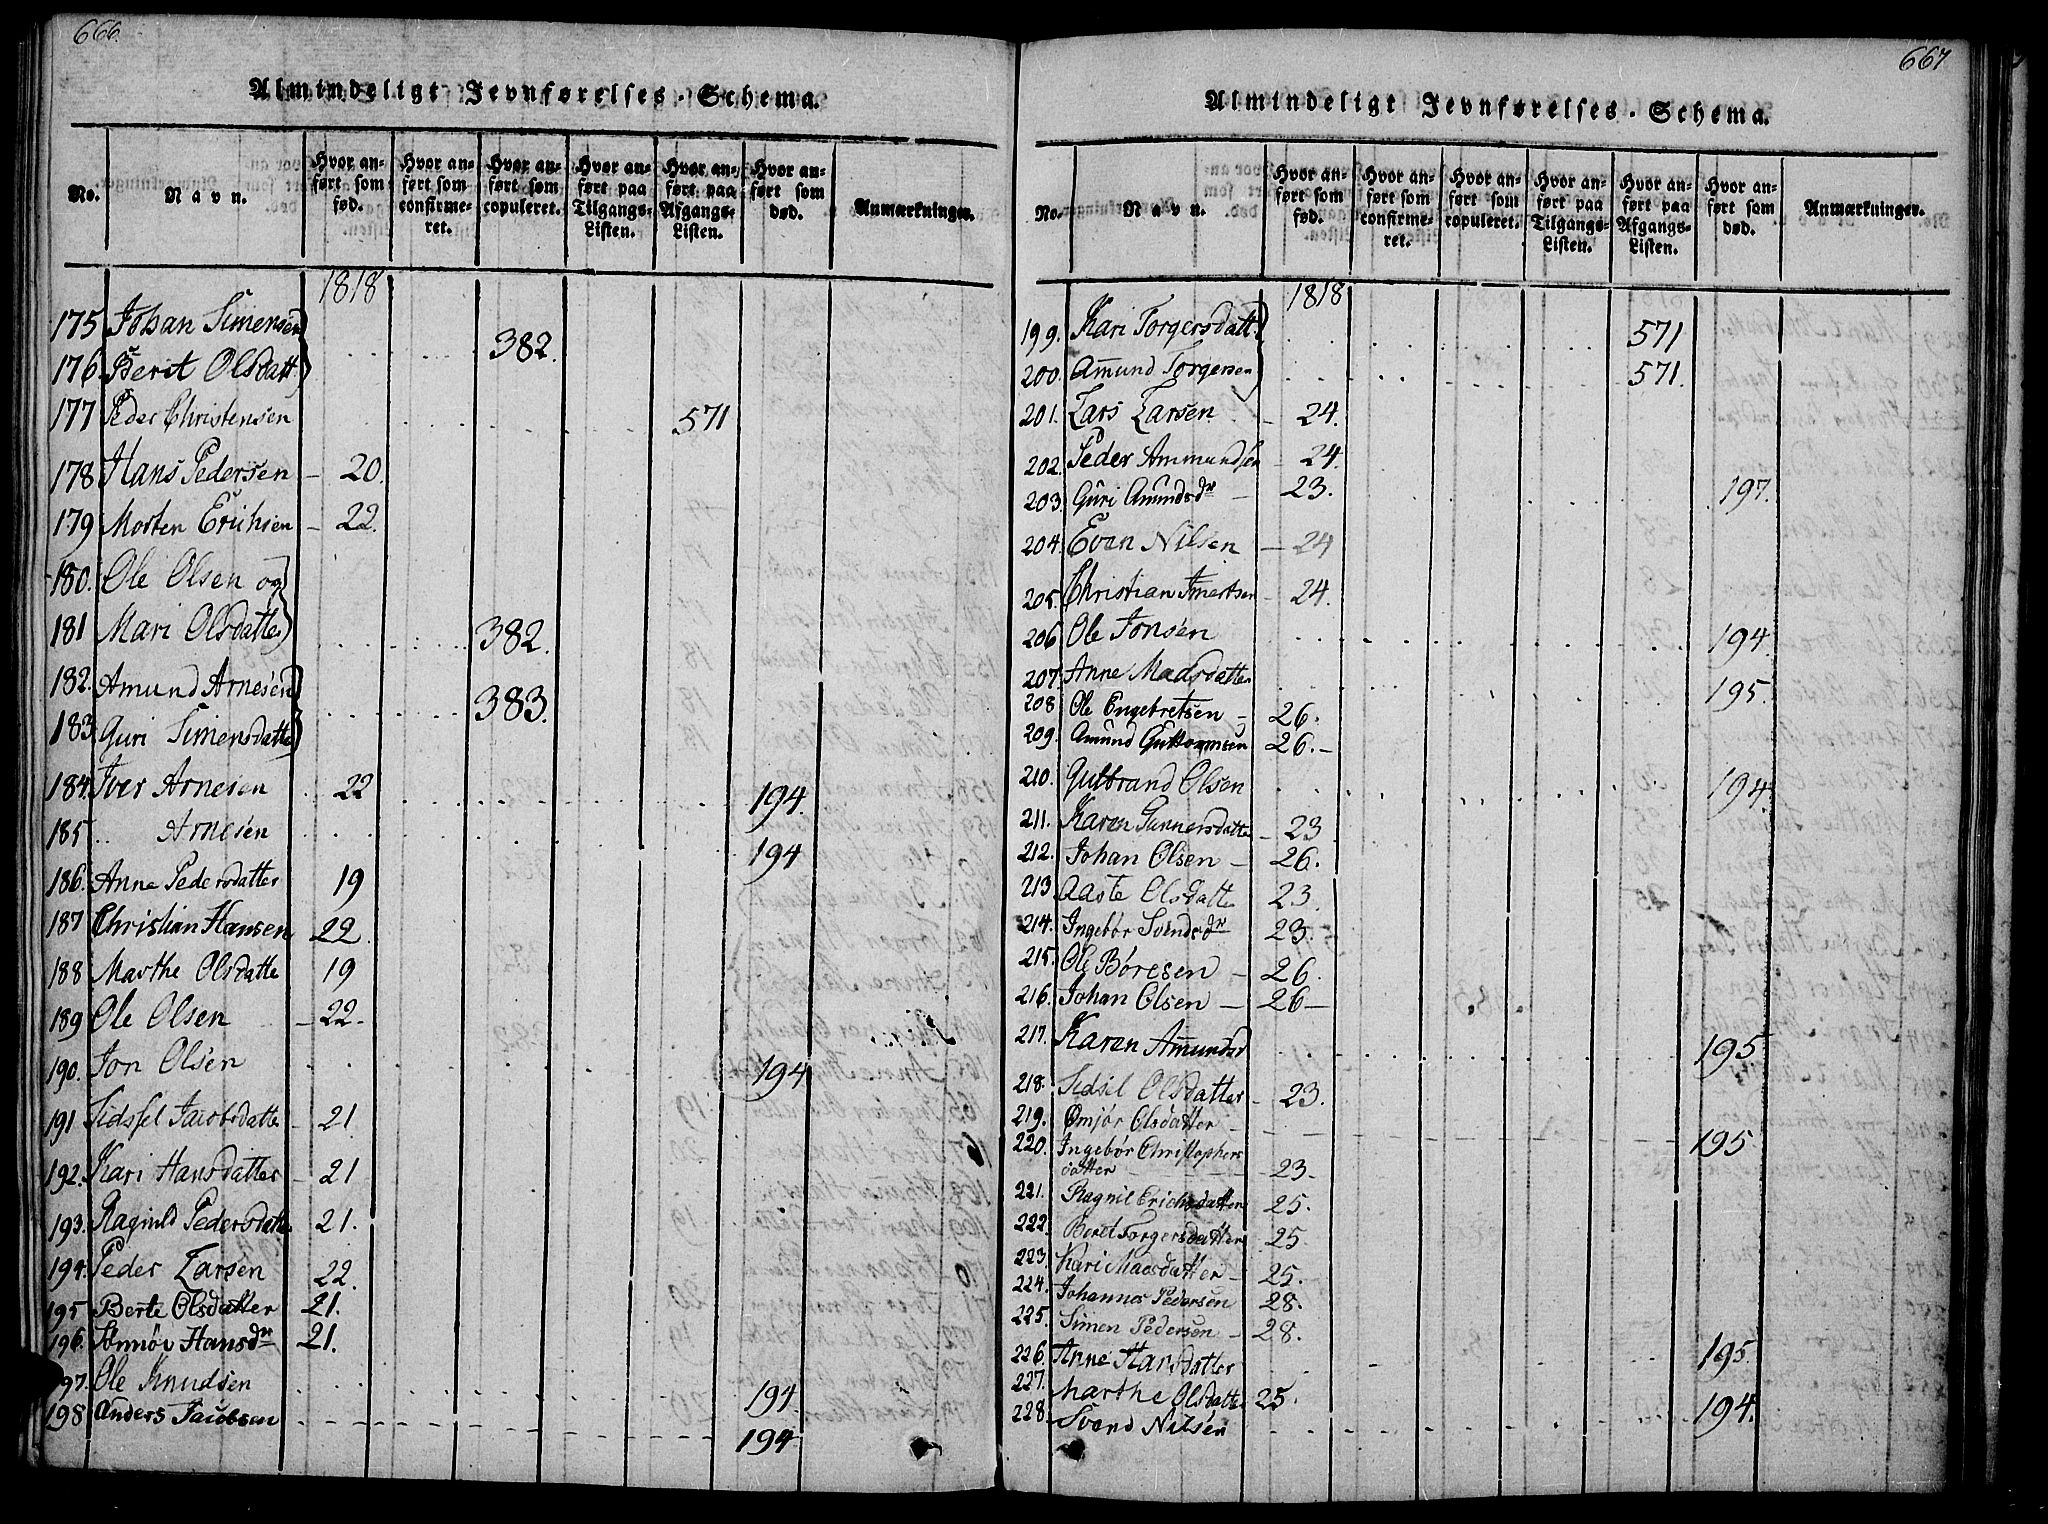 666.
Almindeligt Jevnførelses-Schema.
No.
Navn.
Hvor anført som fød.
Hvor anført som confirmeret.
Hvor anført som copuleret.
Hvor anført paa Tilgangs-Listen.
Hvor anført paa Afgangs-Listen.
Hvor anført som død.
Anmærkninger.
1818
175 Johan Simensen
176 Berit Olsdatt 382.
177 Peder Christensen 571
178 Hans Pedersen - 20.
179 Morten Erichsen - 22.
180. Ole Olsen og
181 Mari Olsdatter 382.
182. Amund Arnesen 383.
183. Guri Simensdatter
184. Iver Arnesen 22 194.
185 Arnesen 194
186. Anne Pedersdatter 19
187 Christian Hansen 22.
188 Marthe Olsdatte 19
189 Ole Olsen - 22-
190. Jon Olsen 194
191 Sidssel Jacobsdatte - 21
192. Kari Hansdatter - 21
193. Ragnild Pedersdatte 21.
194. Peder Larsen 22.
195 Berte Olsdatter 21.
196. Hansdr 21.
197. Ole Knudsen 194.
198 Anders Jacobsen 194
667
Almindeligt Jevnførelses-Schema.
No.
Navn.
Hvor anført som fød.
Hvor anført som confirmeret.
Hvor anført som copuleret.
Hvor anført paa Tilgangs-Listen.
Hvor anført paa Afgangs-Listen.
Hvor anført som død.
Anmærkninger.
1818
199. Kari Torgersdatt 571
200. Amund Torgersen 571.
201. Lars Larsen - 24.
202. Peder Ammundsen - 24.
203. Guri Amundsdr - 23. 197.
204. Even Nilsen - 24
205. Christian - 24.
206 Ole Jonsen 194.
207. Anne Madsdatter 195.
208 Ole Engebretsen - 26.
209. Amund Guttormsen 26.-
210. Gulbrand Olsen 194.
211. Karen Gunnersdatte - 23
212. Johan Olsen - 26.
213 Aaste Olsdatte 23.
214. Ingebør Svendsdr 23.
215. Ole Børesen - 26.
216. Johan Olsen - 26-
217. Karen Amundsd 195
218. Sidsel Olsdatter - 23.
219. Olsdatter - 195
220. Ingebør Christophersdatter - 23-
221. Ragnil Erichsdatter 25.
222. Beret Torgersdatter 25
223. Kari Madsdatter - 25.
224. Johannes Pedersen 28.
225. Simen Pedersen - 28.
226. Anne Hansdatter 195
227. Marthe Olsdatte 25.
228. Svend Nilsen 194.